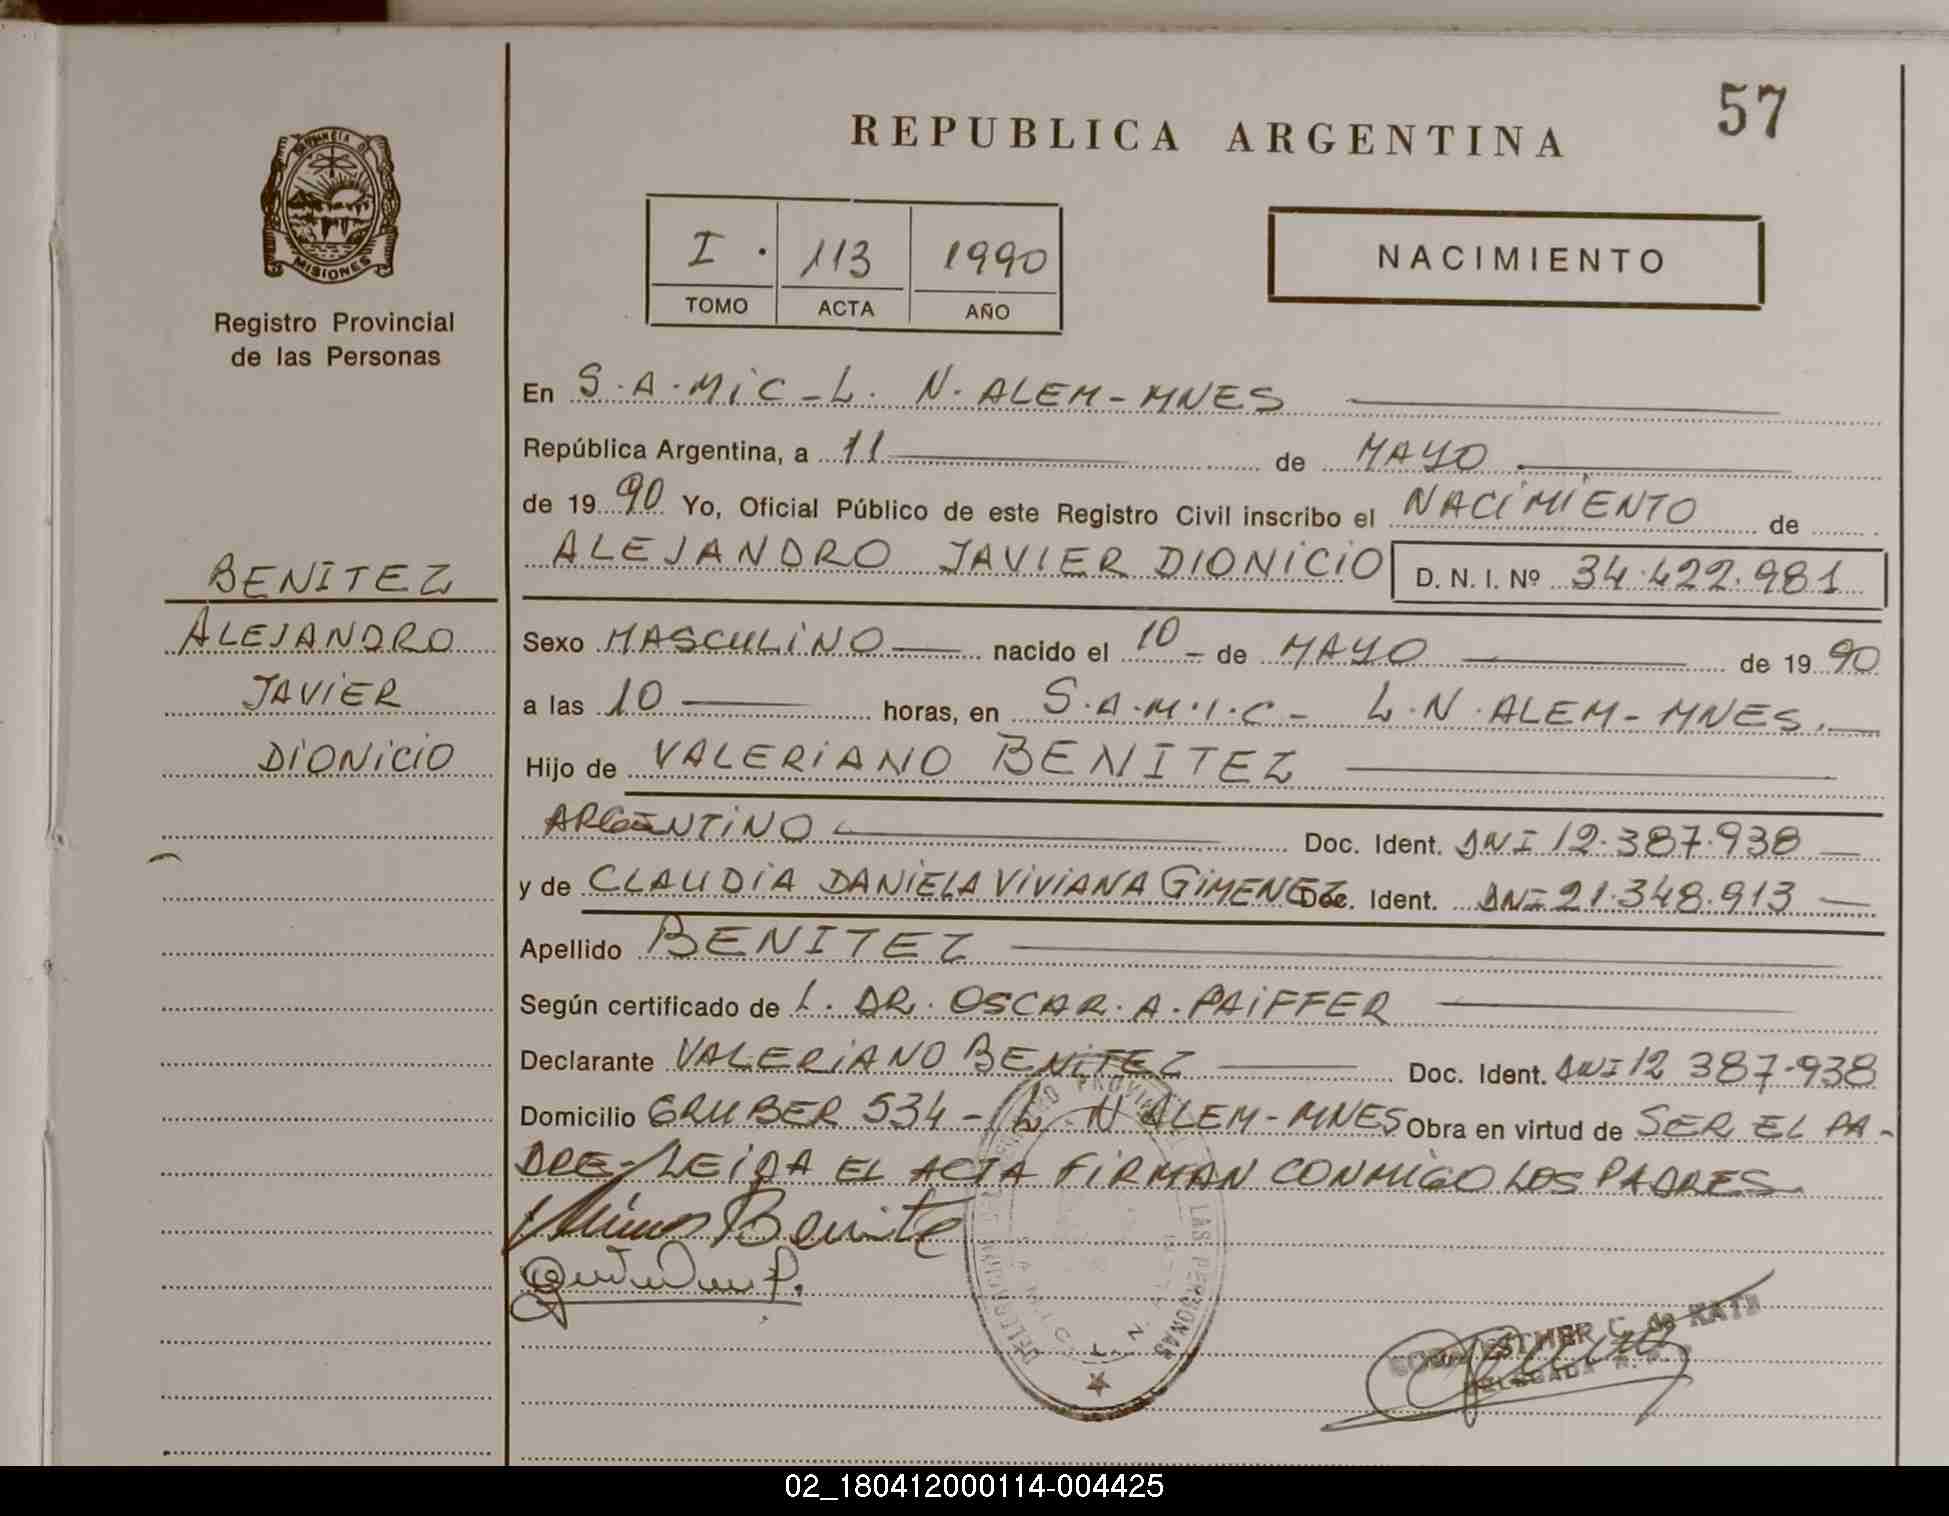 REPUBLICA ARGENTINA
57
PROVINCIA DE
MISIONES
Registro Provincial
de las Personas
I . 113 1990
TOMO ACTA AÑO
NACIMIENTO
En S.A.MIC - L. N. ALEM - MNES
República Argentina, a 11 de MAYO
de 1990 Yo, Oficial Público de este Registro Civil inscribo el NACIMIENTO de
ALEJANDRO JAVIER DIONICIO D. N. I. Nº 34.422.981
BENITEZ
ALEJANDRO
JAVIER
DIONICIO
Sexo MASCULINO nacido el 10 - de MAYO de 1990
a las 10 horas, en S.A.M.I.C - L.N. ALEM - MNES.
Hijo de VALERIANO BENITEZ
ARGENTINO Doc. Ident. DNI 12.387.938
y de CLAUDIA DANIELA VIVIANA GIMENEZ Doc. Ident. DNI 21.348.913
Apellido BENITEZ
Según certificado de L. DR. OSCAR. A. PAIFFER
Declarante VALERIANO BENITEZ Doc. Ident. DNI 12 387.938
Domicilio GRUBER 534 - L. N ALEM - MNES Obra en virtud de SER EL PA-
DRE - LEIDA EL ACTA FIRMAN CONMIGO LOS PADRES
Benitez
LAS PERSONAS
ESTHER C. de
DELEGADA
02_180412000114-004425